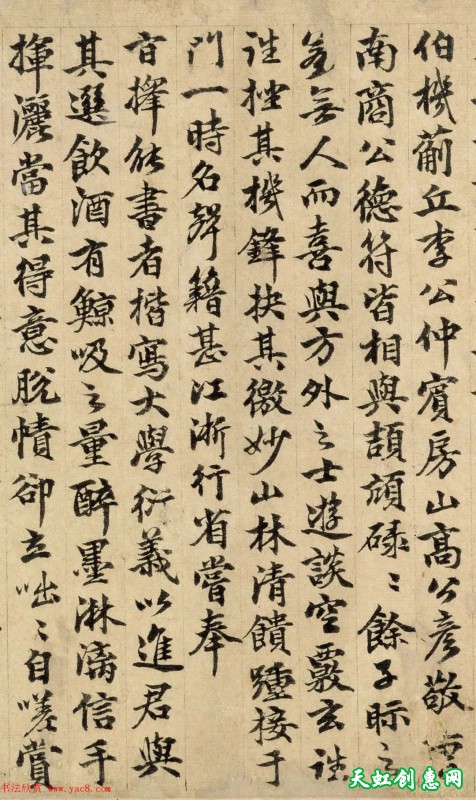 伯機薊丘李公仲賓房山高公彥敬雲
南商公德符皆相與頡頏碌〻餘子眎之
若無人而喜與方外之士遊談空覈玄往
往挫其機鋒抉其微妙山林清饋踵接于
門一時名聲籍甚江淅行省嘗奉
旨擇能書者楷寫大學衍義以進君與
其選飲酒有鯨吸之量醉墨淋漓信手
揮灑當其得意脫幘卻立咄〻自嗟賞
书法欣赏 www.yac8.com
天虹创意网